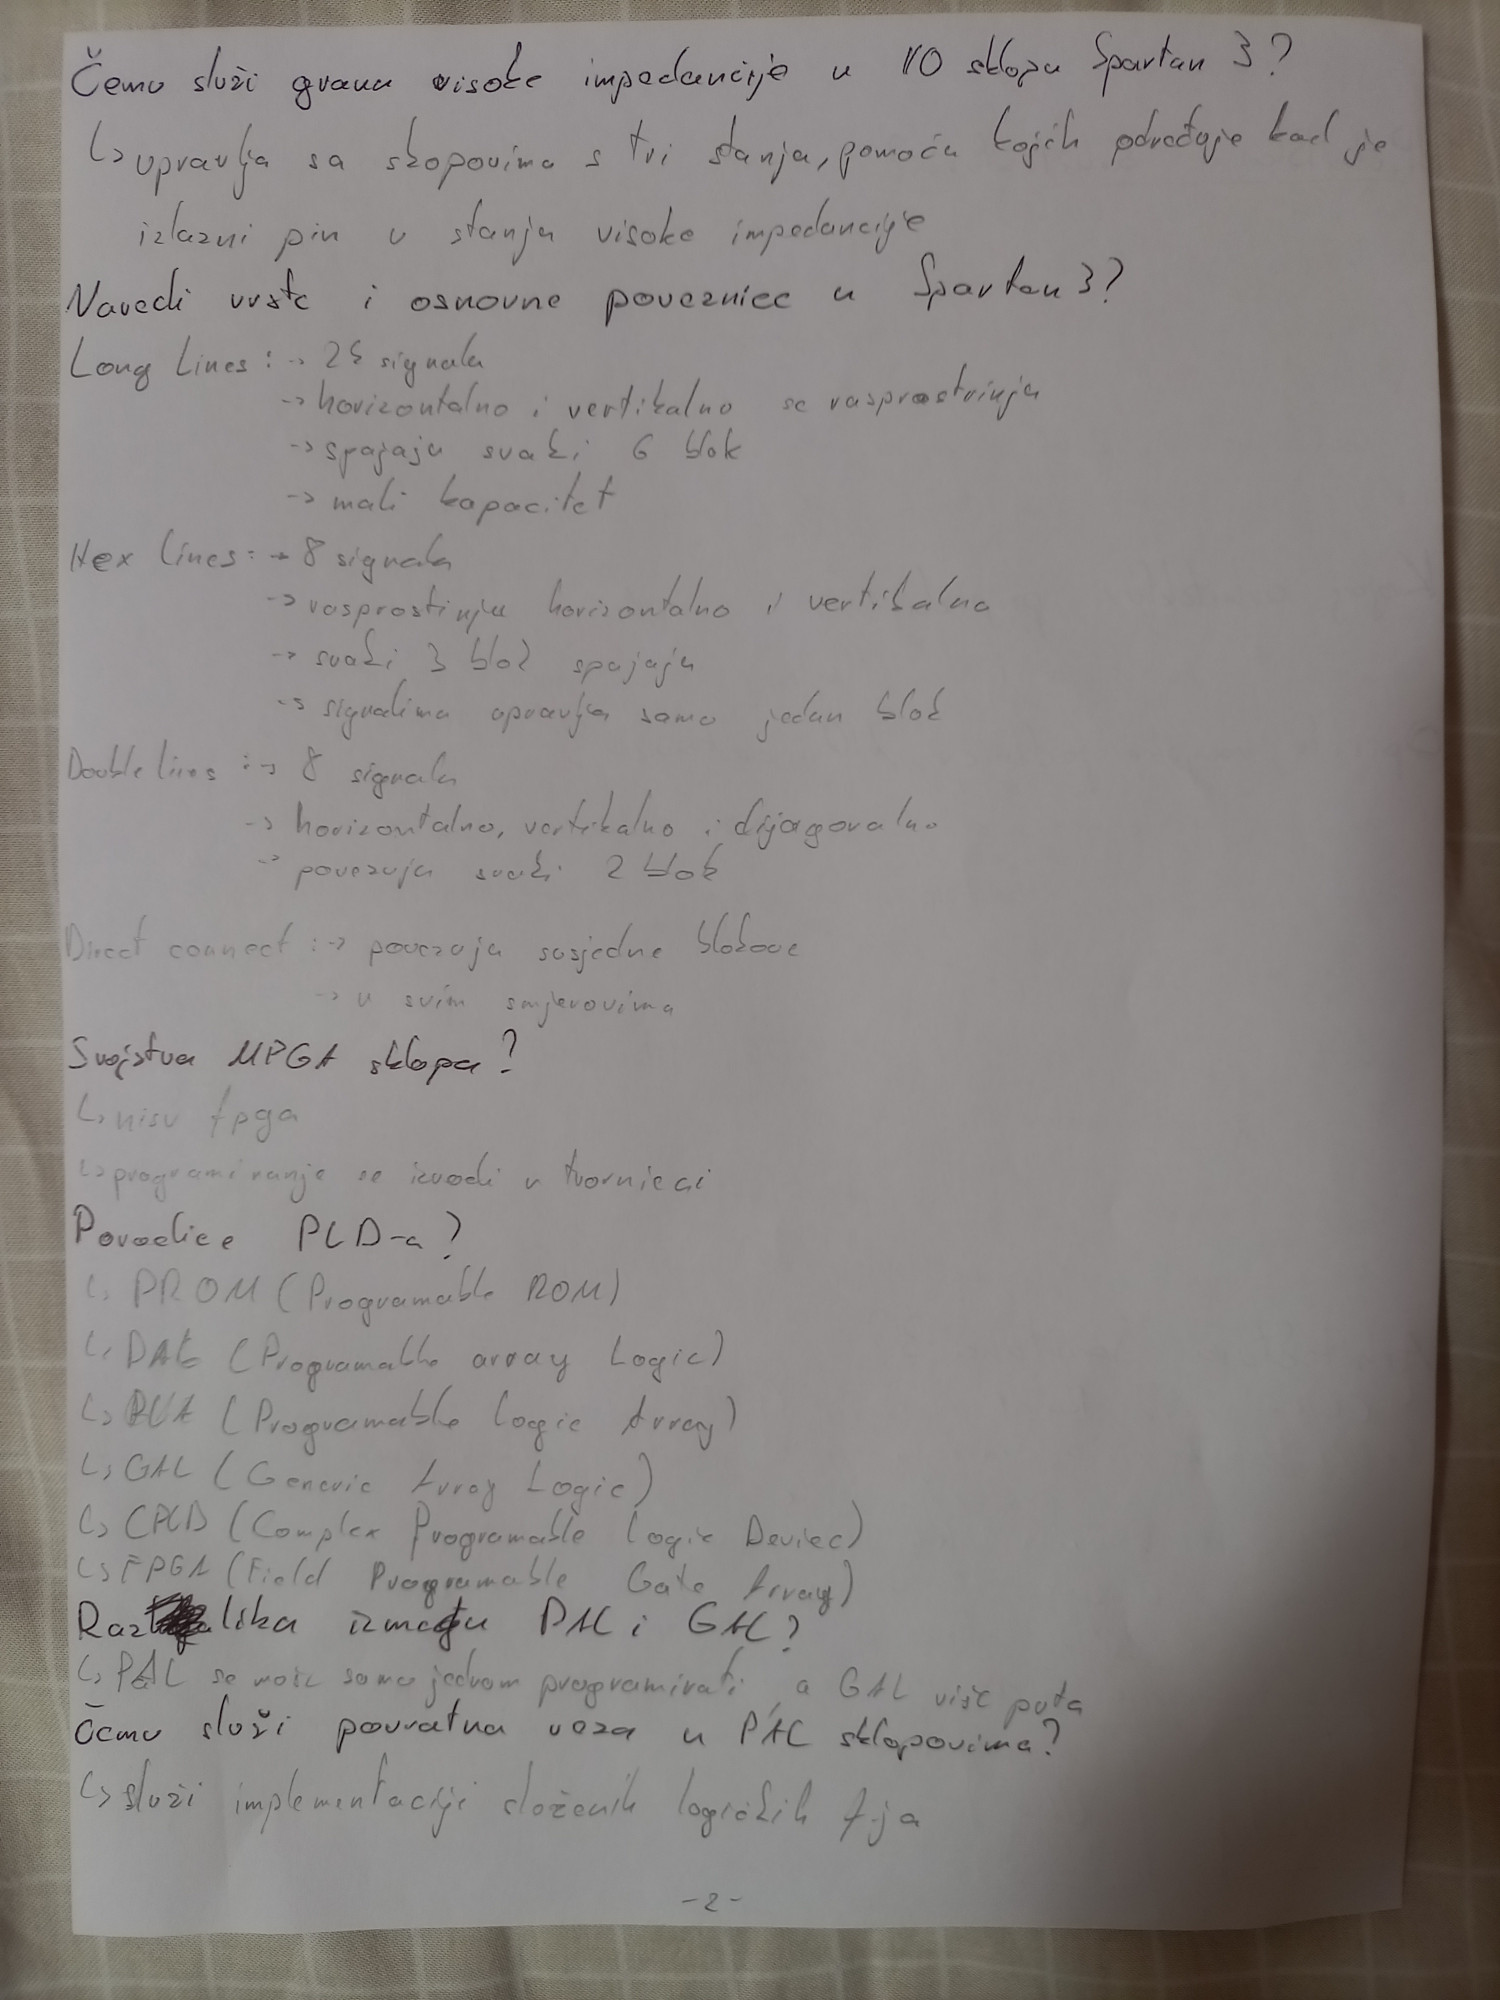 Čemu služi grana visoke impedancije u I/O sklopu Spartan 3?
↳ upravlja sa skopovima s tri stanja, pomoću kojih određuje kad je
izlazni pin u stanju visoke impedancije
Navedi vrste i osnovne poveznice u Spartan 3?
Long Lines: → 24 signala
→ horizontalno i vertikalno se rasprostiru
→ spajaju svaki 6 blok
→ mali kapacitet
Hex lines: → 8 signala
→ rasprostiru horizontalno i vertikalno
→ svaki 3 blok spajaju
→ signalima upravlja samo jedan blok
Double lines: → 8 signala
→ horizontalno, vertikalno i dijagonalno
→ povezuju svaki 2 blok
Direct connect: → povezuju susjedne blokove
→ u svim smjerovima
Svojstva MPGA sklopa?
↳ nisu fpga
↳ programiranje se izvodi u tvornici
Porodice PLD-a?
↳ PROM (Programable ROM)
↳ PAL (Programable array Logic)
↳ PLA (Programable Logic Array)
↳ GAL (Generic Array Logic)
↳ CPLD (Complex Programable Logic Device)
↳ FPGA (Field Programable Gate Array)
Razlika između PAL i GAL?
↳ PAL se može samo jednom programirati, a GAL više puta
Čemu služi povratna veza u PAL sklopovima?
↳ služi implementaciji složenih logičkih f-ja
-2-